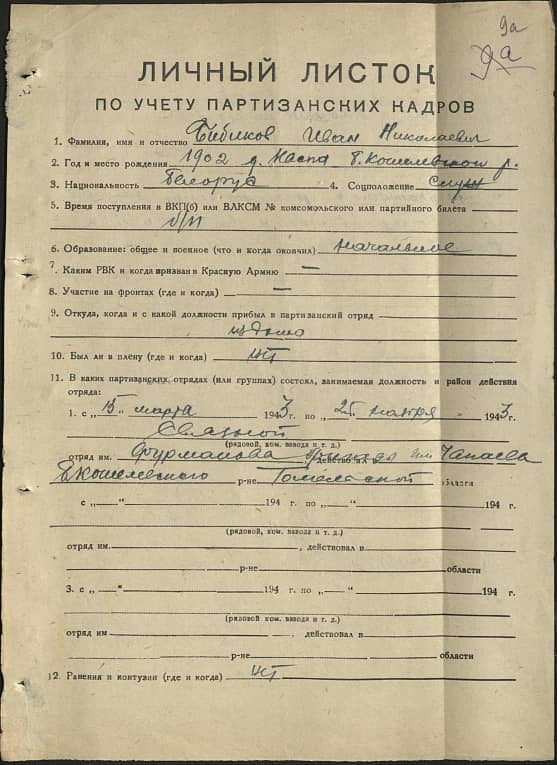 9а
9а
ЛИЧНЫЙ ЛИСТОК
ПО УЧЕТУ ПАРТИЗАНСКИХ КАДРОВ
1. Фамилия, имя и отчество Бибиков Иван Николаевич
2. Год и место рождения 1902 д. Наспа Б. Кошелевского р.
3. Национальность Белорус 4. Соцположение служ
5. Время поступления в ВКП(б) или ВЛКСМ № комсомольского или партийного билета
б/п
6. Образование: общее и военное (что и когда окончил) начальное
7. Каким РВК и когда призван в Красную Армию —
8. Участие на фронтах (где и когда) —
9. Откуда, когда и с какой должности прибыл в партизанский отряд
из дому
10. Был ли в плену (где и когда) нет
11. В каких партизанских отрядах (или группах) состоял, занимаемая должность и район действия
отряда:
1. с „15" марта 1943 г. по „25" ноября 1943 г.
Связной
(рядовой, ком. взвода и т. д.)
отряд им. Фурманова действовал в им Чапаева
Б Кошелевского р-не Гомельской области
с „ " 194 г. по „ " 194 г.
(рядовой, ком. взвода и т. д.)
отряд им. , действовал в
р-не области
3. с „ " 194 г. по „ " 194 г.
(рядовой, ком. взвода и т. д.)
отряд им , действовал в
р-не области
12. Ранения и контузии (где и когда) нет